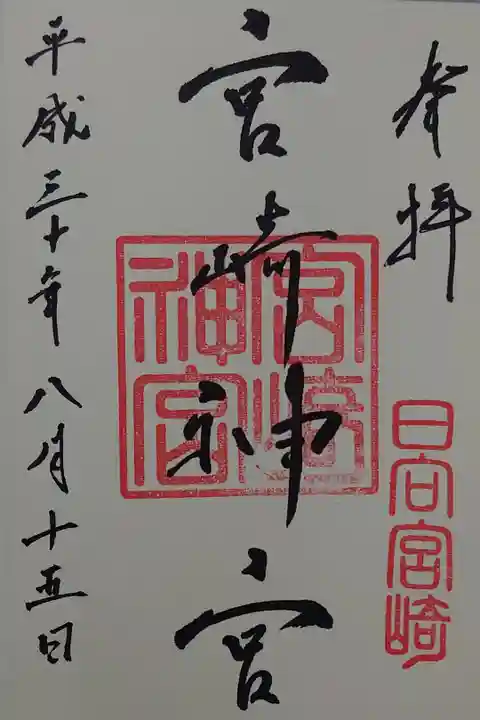 奉拝
日向宮崎
宮崎神宮
宮崎
神宮
平成三十年八月十五日